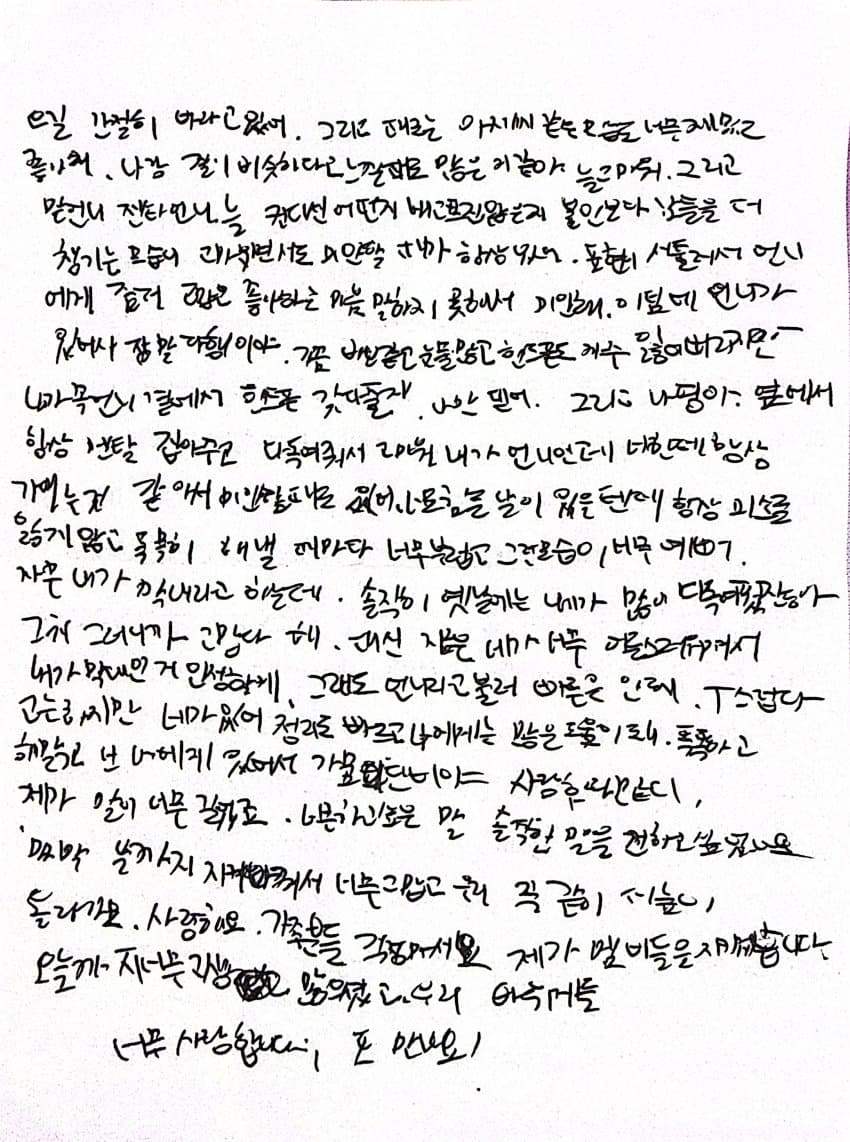 으길 간절히 바라고 있어. 그리고 때로는 아저씨 같은 모습도 너무 재밌고
좋아해. 나랑 결이 비슷하다고 느낄때도 많은 거 같아 늘 고마워. 그리고
맏언니 언니 늘 컨디션 어떤지 배고프진 않은지 본인보다 남들을 더
챙기는 모습이 고마우면서도 미안할 때가 항상 있어. 표현이 서툴러서 언니
에게 직접 고맙고 좋아하는 마음 말하지 못해서 미안해. 이 팀에 언니가
있어서 정말 다행이야. 가끔 눈물많고 핸드폰도 자주 잃어버리지만
내가 꼭 언니 곁에서 핸드폰 갖다줄게. 그리고 옆에서
항상 멘탈 잡아주고 다독여줘서 고마워 내가 언니인데 너한테 항상
기대는 것 같아서 미안할때도 있어 힘들 날이 있을텐데 항상
잃지 않고 묵묵히 해낼 때마다 너무 부럽고 그런 모습이 너무 예뻐.
자꾸 내가 막내라고 하는데. 솔직히 옛날에는 내가 많이 다독여줬잖아
그치 그러니까 고맙다 해. 대신 지금은 네가 너무 어른스러워져서
내가 막내인 거 인정할게. 그래도 언니라고 불러 빠른은 안돼. T스럽다
고는 하지만 네가 있어 정리도 빠르고 나에게는 많은 도움이 돼. 똑똑하고
해맑고 난 너에게 있어서 사랑한다
제가 말이 너무 길었죠. 하고싶은 말 솔직한 말을 전하고 싶었나요
마지막 날까지 지켜봐주셔서 너무 고맙고 우리 꼭 같이
돌라가요. 사랑해요. 가족분들 걱정마세요 제가 멤버들을 지키겠습니다
오늘까지 너무 고생 많으셨고 우리
너무 사랑합니다, 또 만나요!